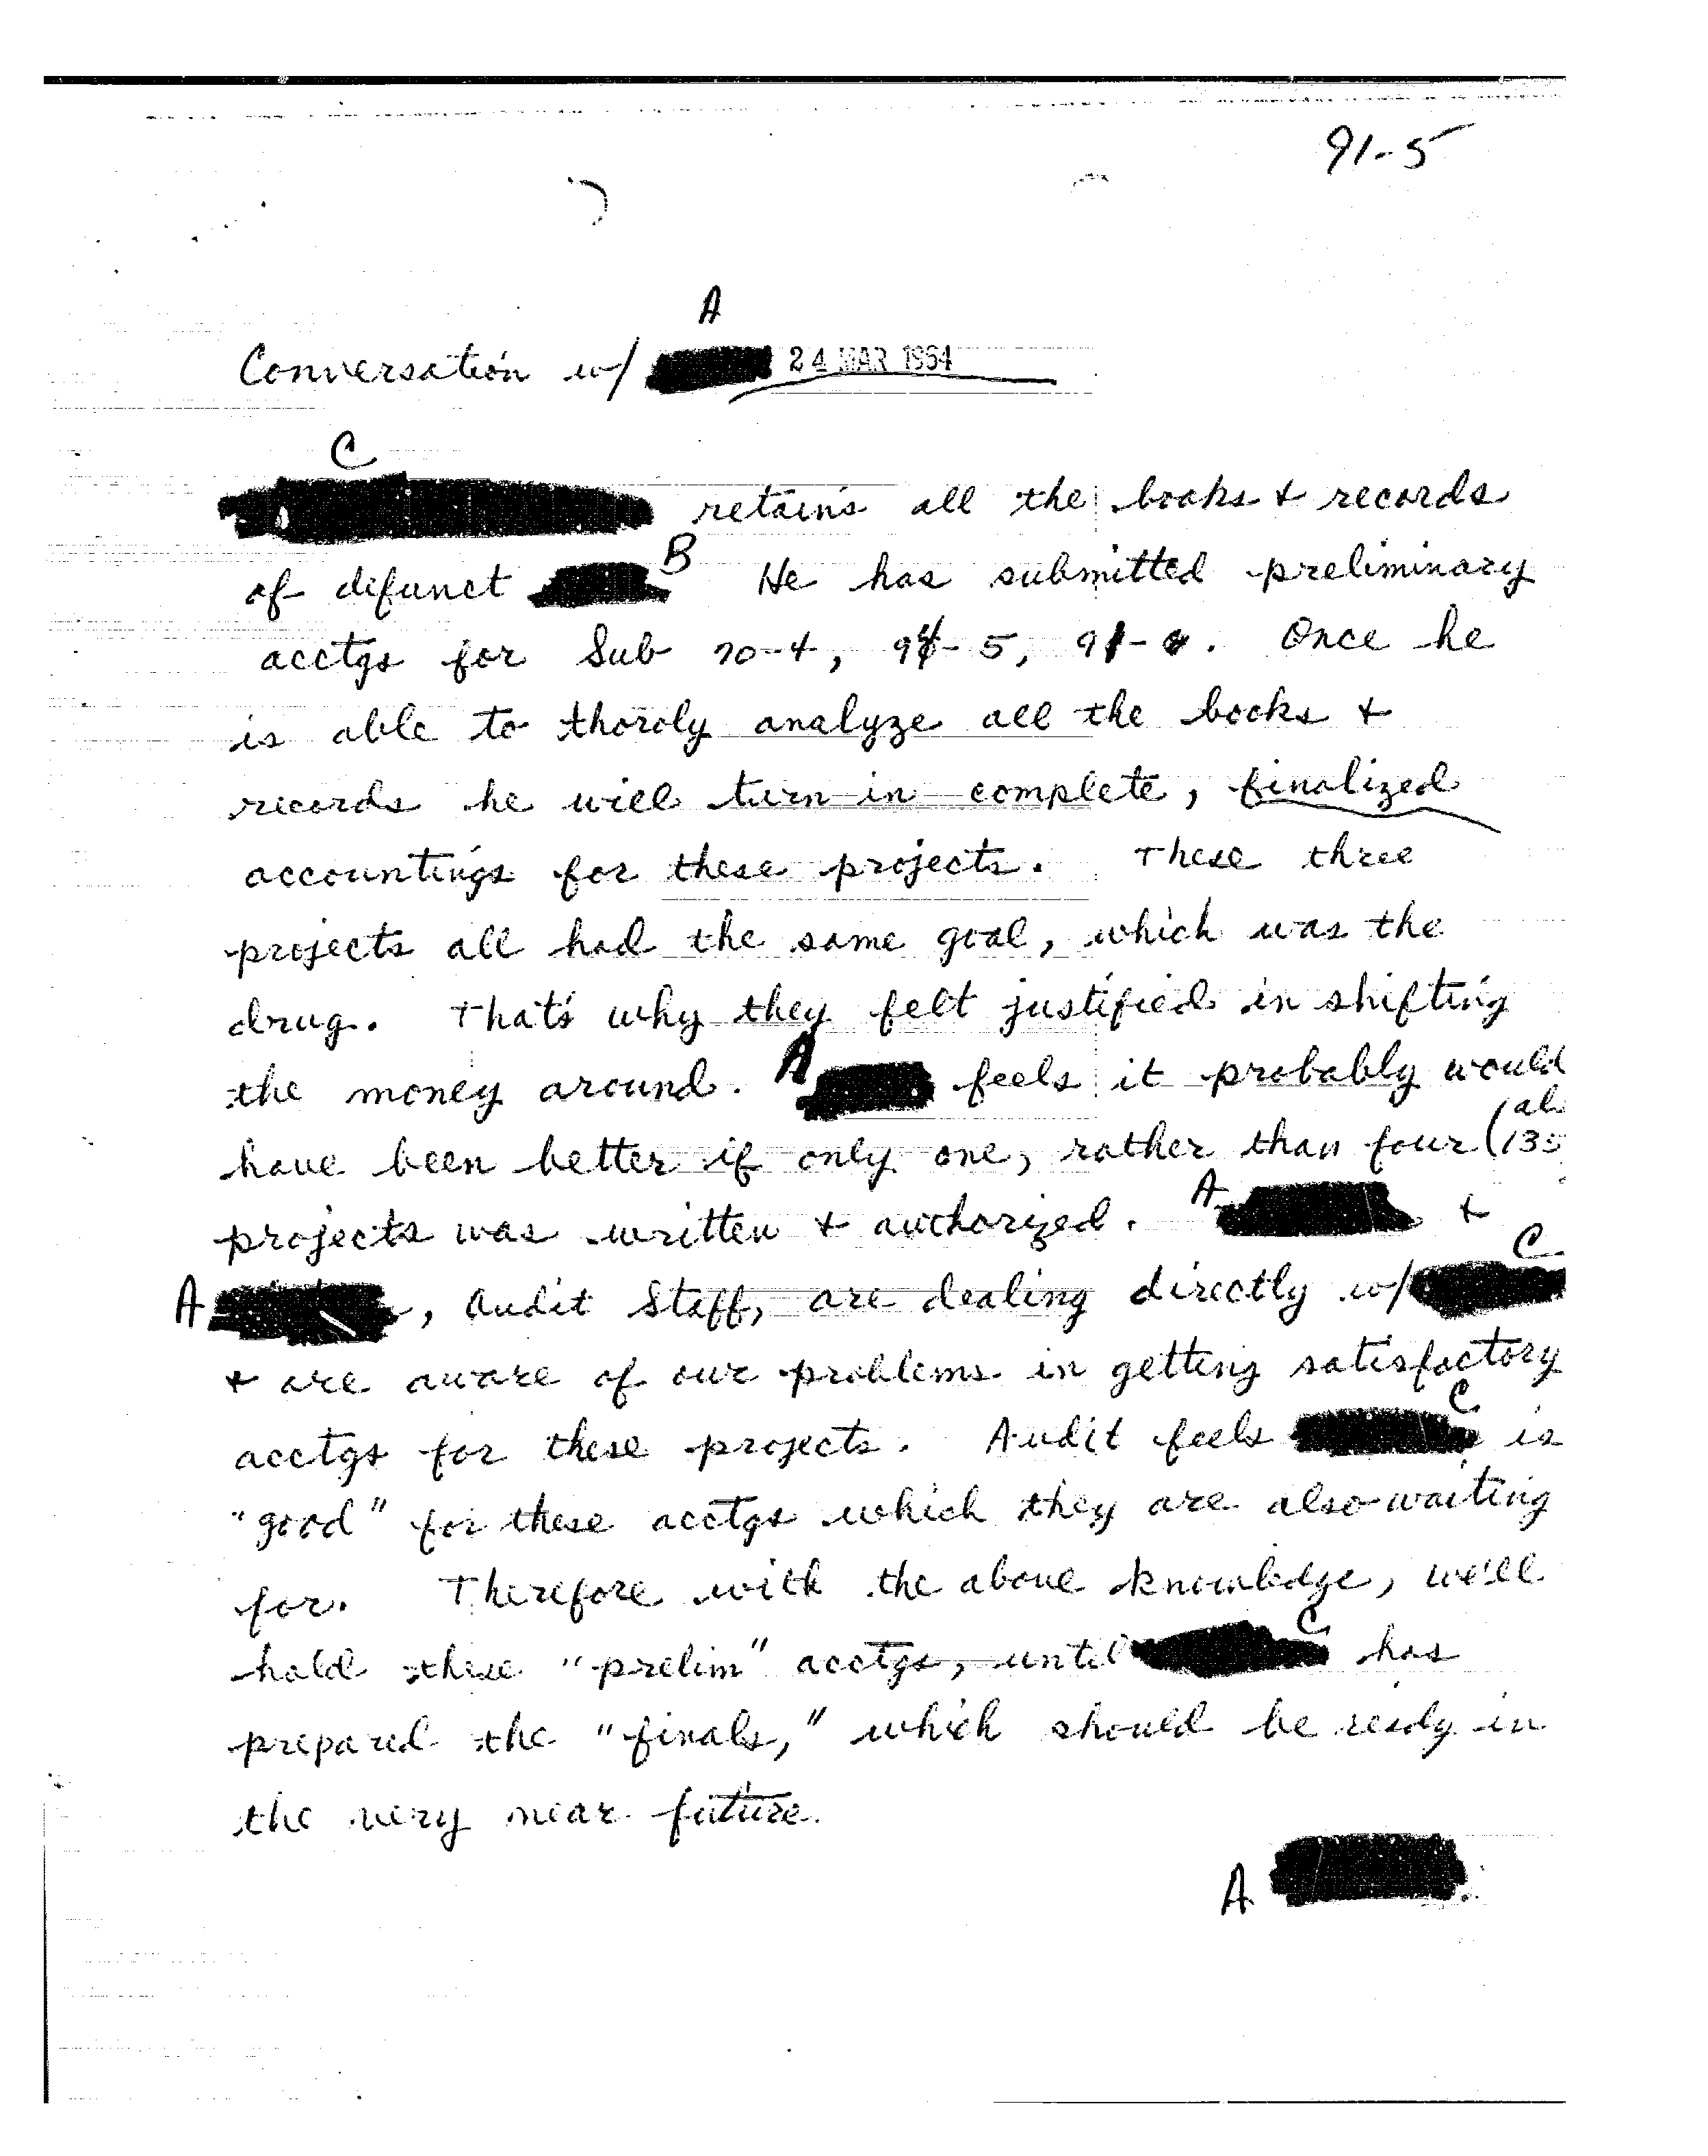 91-5
A
Conversation w/ 24 MAR 1964
C
retains all the books & records
of difunct B He has submitted preliminary
acctgs for Sub 70-4, 94-5, 91-. Once he
is able to thoroly analyze all the books &
records he will turn in complete, finalized
accountings for these projects. These three
projects all had the same goal, which was the
drug. That's why they felt justified in shifting
the money around. A feels it probably would
have been better if only one, rather than four (135
projects was written & authorized. A &
A , Audit Staff, are dealing directly w/ C
& are aware of our problems in getting satisfactory
acctgs for these projects. Audit feels C is
"good" for these acctgs which they are also waiting
for. Therefore with the above knowledge, we'll
hold these "prelim" acctgs, until C has
prepared the "finals," which should be ready in
the very near future.
A